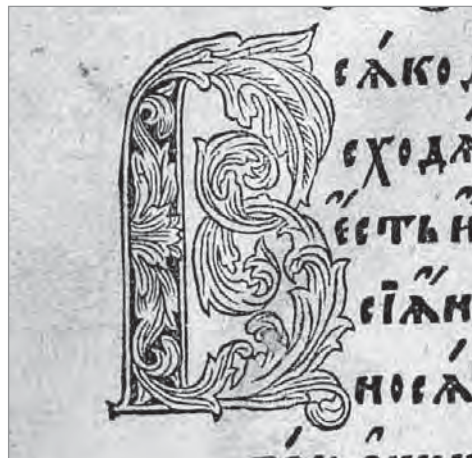 Всѧ́ко
сходѧ
є҆́сть н
сїѧ́н
носѧ